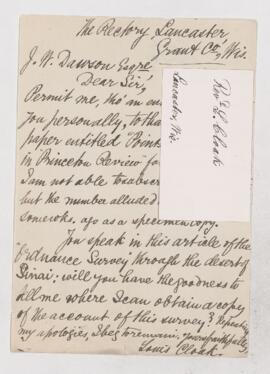 The Rectory Lancaster
Grant Co, Wis.
J. W. Dawson Esqre
Dear Sir,
Permit me, tho' an en
you personally, to tha
paper entitled "Points
in Princeton Review" fo
I am not able to subscr
but the number alluded
some wks. ago as a specimen copy.
You speak in this article of the
"Ordnance Survey through the desert of
Sinai; will you have the goodness to
tell me where I can obtain a copy
of the account of this survey? Repeating
my apologies, I beg to remain, yours faithfully,
Louis Cloak.
Revd L. Cloak
Lancaster, Wis.